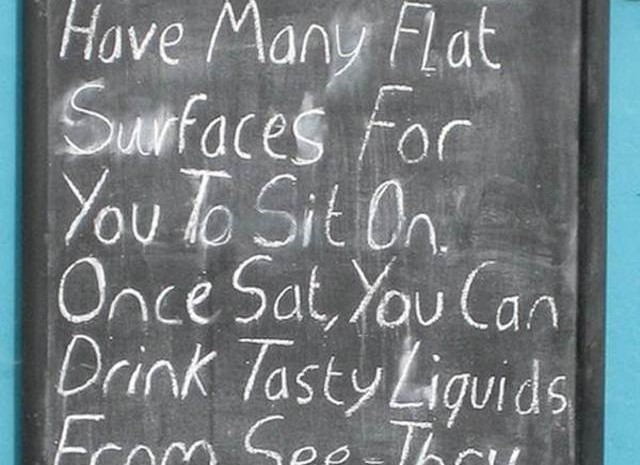 Have Many Flat
Surfaces For
You To Sit On.
Once Sat, You Can
Drink Tasty Liquids
From See-Thru